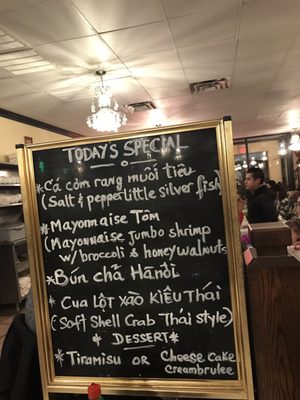 TODAY'S SPECIAL
*Cá cơm rang muối tiêu
(Salt & pepper little silver fish)
*Mayonnaise Tôm
(Mayonnaise jumbo shrimp
w/ broccoli & honey walnuts
*Bún chả Hànôi
*Cua LỘT XÀO KIỂU THÁI
(Soft Shell Crab Thái style)
*DESSERT*
*Tiramisu OR Cheese Cake
creambrulee